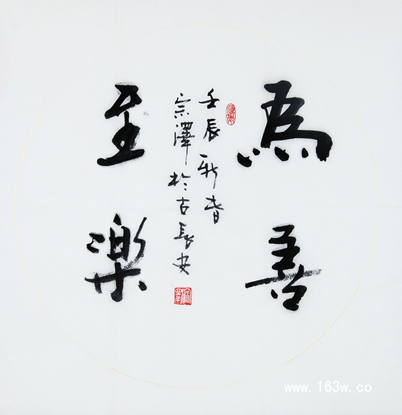 為善
至樂
壬辰新春
宗澤於古長安
www.163w.co